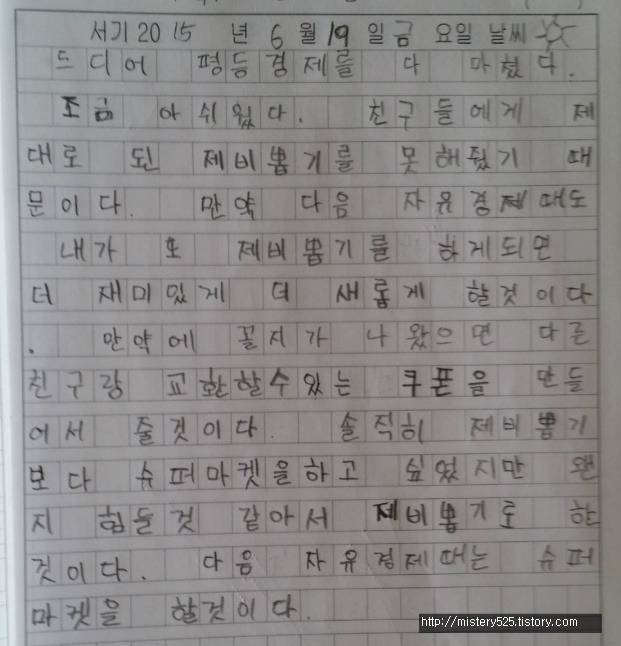 서기 2015 년 6 월 19 일 금 요일 날씨
드디어 평등경제를 다 마쳤다.
조금 아쉬웠다. 친구들에게 제
대로 된 제비뽑기를 못해줬기 때
문이다. 만약 다음 자유경제때도
내가 또 제비뽑기를 하게되면
더 재미있게 더 새롭게 할것이다
. 만약에 꼴지가 나왔으면 다른
친구랑 교환할수있는 쿠폰을 만들
어서 줄것이다. 솔직히 제비뽑기
보다 슈퍼마켓을하고 싶었지만 왠
지 힘들것 같아서 제비뽑기로 한
것이다. 다음 자유경제때는 슈퍼
마켓을 할것이다.
http://mistery525.tistory.com